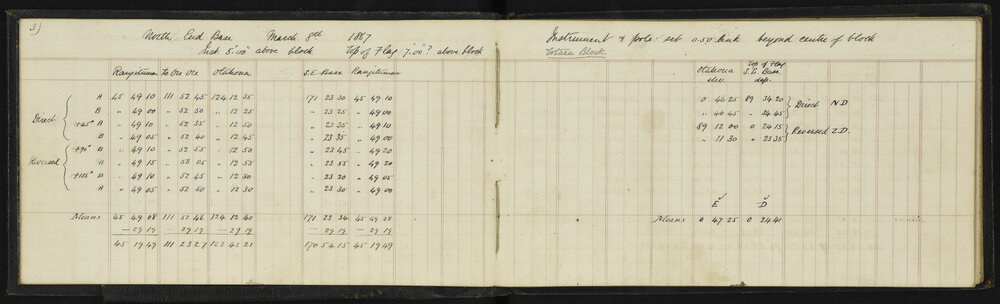 3)
North End Base March 8th 1867
Inst 5'.00" above block Top of Flag 7'.00"? above block
Rangitumau Te Ore Ore Otahoua S.E. Base Rangitumau
A 45 49 10 111 52 45 124 12 35 171 23 30 45 49 10
B " 49 00 " 52 50 " 12 25 " 23 25 " 49 00
Direct +45° A " 49 10 " 52 35 " 12 50 " 23 35 " 49 10
B " 49 05 " 52 40 " 12 45 " 23 35 " 49 00
+90° B " 49 10 " 52 55 " 12 50 " 23 45 " 49 20
Reversed A " 49 15 " 53 05 " 12 55 " 23 55 " 49 20
+135° B " 49 10 " 52 45 " 12 50 " 23 20 " 49 05
A " 49 05 " 52 50 " 12 30 " 23 30 " 49 00
Means 45 49 08 111 52 46 124 12 40 171 23 34 45 49 08
— 29 19 — 29 19 — 29 19 — 29 19 — 29 19
45 19 49 111 23 27 123 43 21 170 54 15 45 19 49
Instrument & pole set 0.50 link beyond centre of block
Totara Block
Otahoua elev. Top of Flag S.E. Base dep.
0 46 25 89 34 20 Direct N.D
" 46 45 " 34 45
89 12 00 0 24 15 Reversed Z.D.
" 11 30 " 23 35
E D
Means 0 47 25 0 24 41